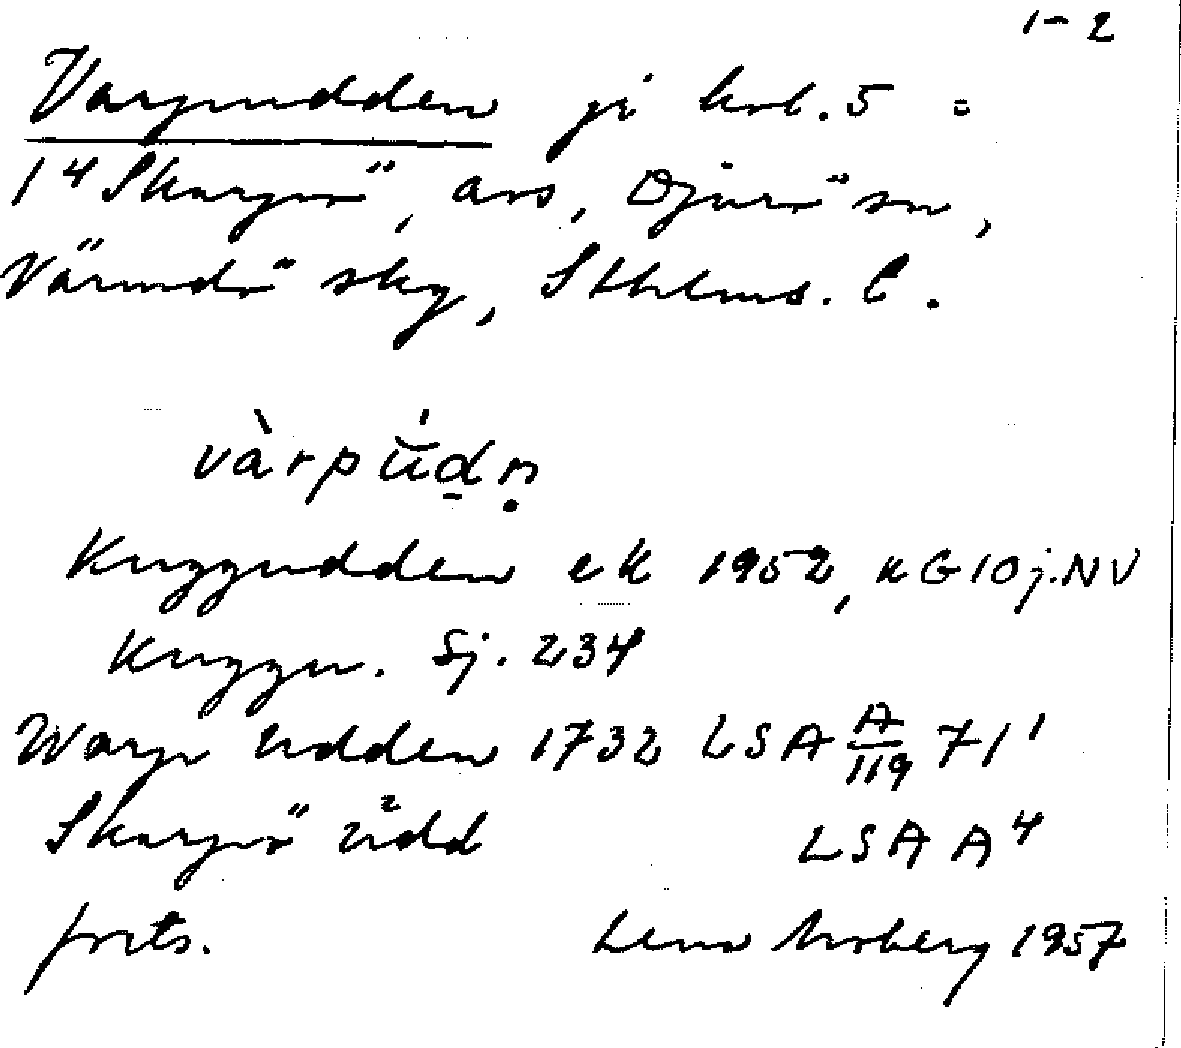 1-2
Varpudden på kbl. 5 =
1⁴ Skarpö, avs, Djurö sn,
Värmdö skg, Sthlms. l.
vàrpúdn̥
Kuggudden ek 1952, kG10j.NV
Kuggu. Sj. 234
Warp Udden 1732 LSA A/119 71¹
Skarpö udd LSA A⁴
forts. Lena Moberg 1957